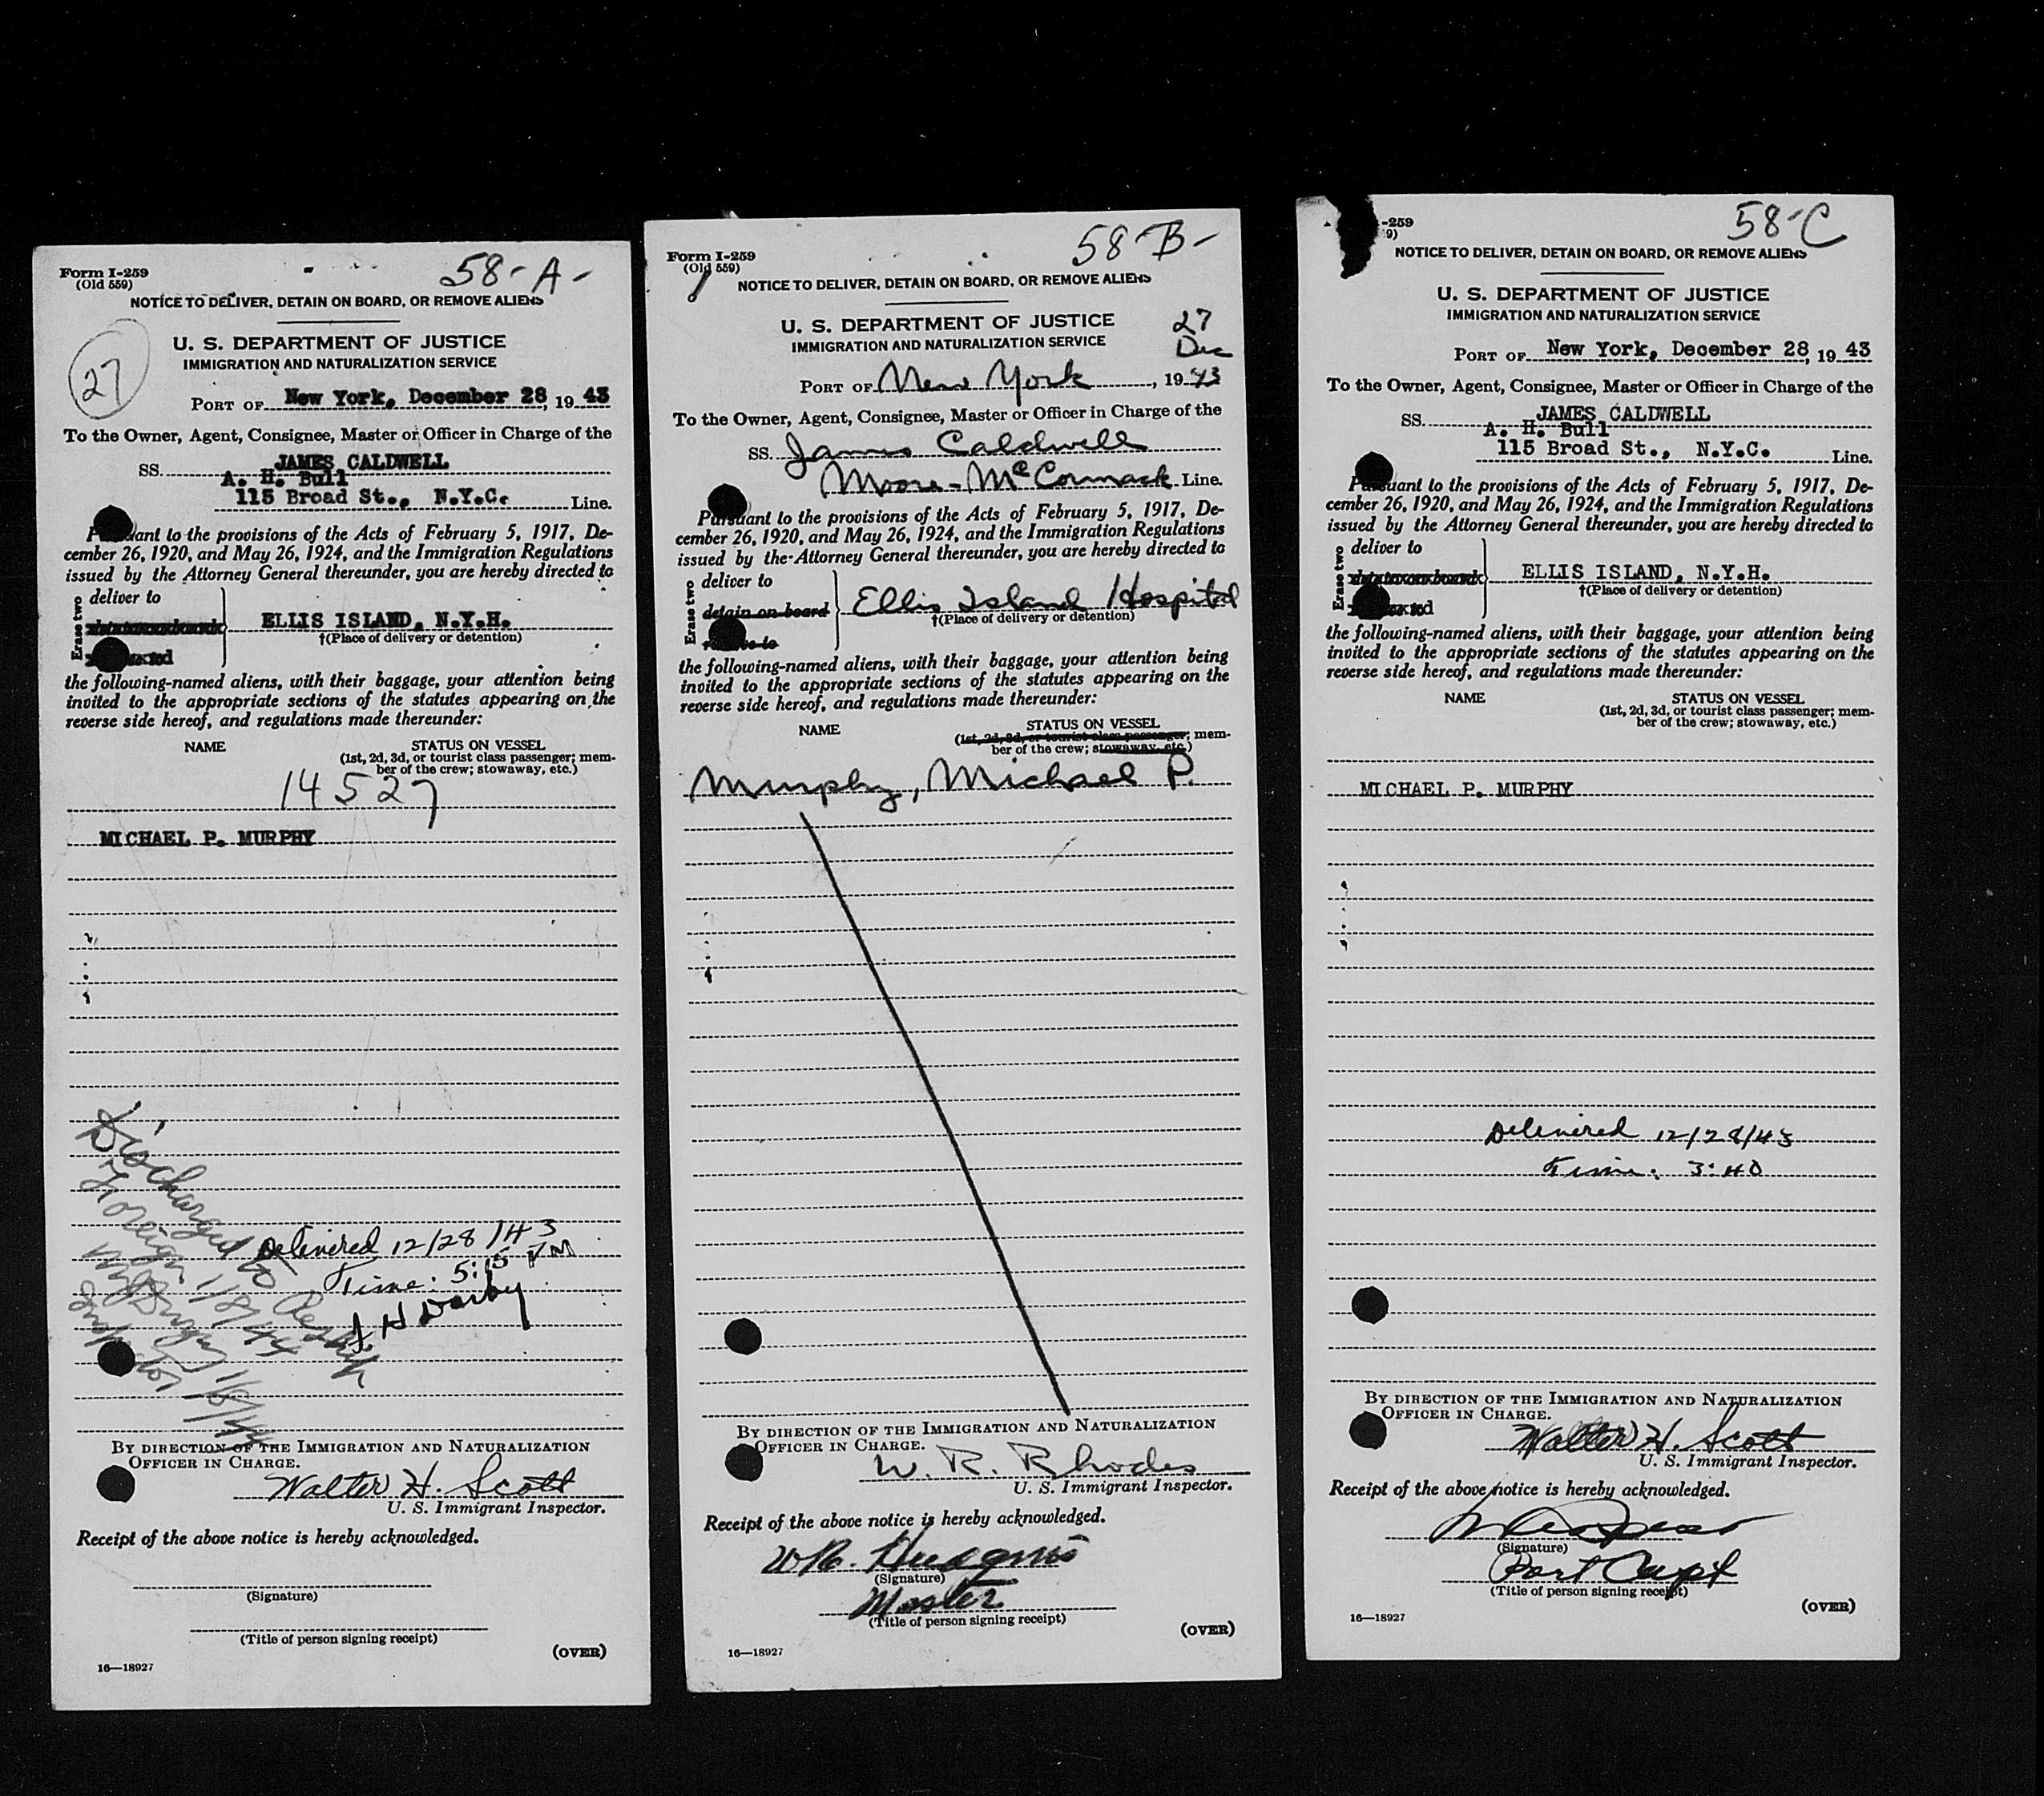 58-A-
Form I-259
(Old 559)
NOTICE TO DELIVER, DETAIN ON BOARD, OR REMOVE ALIENS
27
U. S. DEPARTMENT OF JUSTICE
IMMIGRATION AND NATURALIZATION SERVICE
PORT OF New York, December 28, 19 43
To the Owner, Agent, Consignee, Master or Officer in Charge of the
SS. JAMES CALDWELL
A. H. Bull
115 Broad St., N.Y.C. Line.
Pursuant to the provisions of the Acts of February 5, 1917, De-
cember 26, 1920, and May 26, 1924, and the Immigration Regulations
issued by the Attorney General thereunder, you are hereby directed to
Erase two
deliver to
ELLIS ISLAND, N.Y.H.
†(Place of delivery or detention)
the following-named aliens, with their baggage, your attention being
invited to the appropriate sections of the statutes appearing on the
reverse side hereof, and regulations made thereunder:
NAME STATUS ON VESSEL
(1st, 2d, 3d, or tourist class passenger; mem-
ber of the crew; stowaway, etc.)
14527
MICHAEL P. MURPHY
Discharged to
Foreign 1/8/44
Inspector 1/8/44
Delivered 12/28/43
Time: 5:15 PM
H Darby
BY DIRECTION OF THE IMMIGRATION AND NATURALIZATION
OFFICER IN CHARGE.
Walter H. Scott
U. S. Immigrant Inspector.
Receipt of the above notice is hereby acknowledged.
(Signature)
(Title of person signing receipt)
(OVER)
16—18927
58-B-
Form I-259
(Old 559)
NOTICE TO DELIVER, DETAIN ON BOARD, OR REMOVE ALIENS
U. S. DEPARTMENT OF JUSTICE
IMMIGRATION AND NATURALIZATION SERVICE
27
Dec
PORT OF New York, 19 43
To the Owner, Agent, Consignee, Master or Officer in Charge of the
SS. James Caldwell
Moore-McCormack Line.
Pursuant to the provisions of the Acts of February 5, 1917, De-
cember 26, 1920, and May 26, 1924, and the Immigration Regulations
issued by the Attorney General thereunder, you are hereby directed to
Erase two
deliver to
detain on board
remove to
Ellis Island Hospital
†(Place of delivery or detention)
the following-named aliens, with their baggage, your attention being
invited to the appropriate sections of the statutes appearing on the
reverse side hereof, and regulations made thereunder:
NAME STATUS ON VESSEL
(1st, 2d, 3d, or tourist class passenger; mem-
ber of the crew; stowaway, etc.)
Murphy, Michael P.
BY DIRECTION OF THE IMMIGRATION AND NATURALIZATION
OFFICER IN CHARGE.
W. R. Rhodes
U. S. Immigrant Inspector.
Receipt of the above notice is hereby acknowledged.
Hudgins
(Signature)
Master
(Title of person signing receipt)
(OVER)
16—18927
58-C
-259
9)
NOTICE TO DELIVER, DETAIN ON BOARD, OR REMOVE ALIENS
U. S. DEPARTMENT OF JUSTICE
IMMIGRATION AND NATURALIZATION SERVICE
PORT OF New York, December 28, 19 43
To the Owner, Agent, Consignee, Master or Officer in Charge of the
SS. JAMES CALDWELL
A. H. Bull
115 Broad St., N.Y.C. Line.
Pursuant to the provisions of the Acts of February 5, 1917, De-
cember 26, 1920, and May 26, 1924, and the Immigration Regulations
issued by the Attorney General thereunder, you are hereby directed to
Erase two
deliver to
ELLIS ISLAND, N.Y.H.
†(Place of delivery or detention)
the following-named aliens, with their baggage, your attention being
invited to the appropriate sections of the statutes appearing on the
reverse side hereof, and regulations made thereunder:
NAME STATUS ON VESSEL
(1st, 2d, 3d, or tourist class passenger; mem-
ber of the crew; stowaway, etc.)
MICHAEL P. MURPHY
Delivered 12/28/43
Time: 3:40
BY DIRECTION OF THE IMMIGRATION AND NATURALIZATION
OFFICER IN CHARGE.
Walter H. Scott
U. S. Immigrant Inspector.
Receipt of the above notice is hereby acknowledged.
(Signature)
Port Capt
(Title of person signing receipt)
(OVER)
16—18927